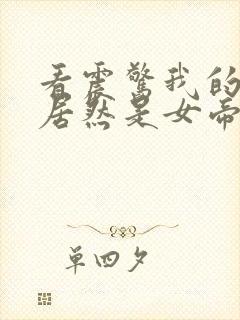 看震驚我的
居然是女帝
單四夕